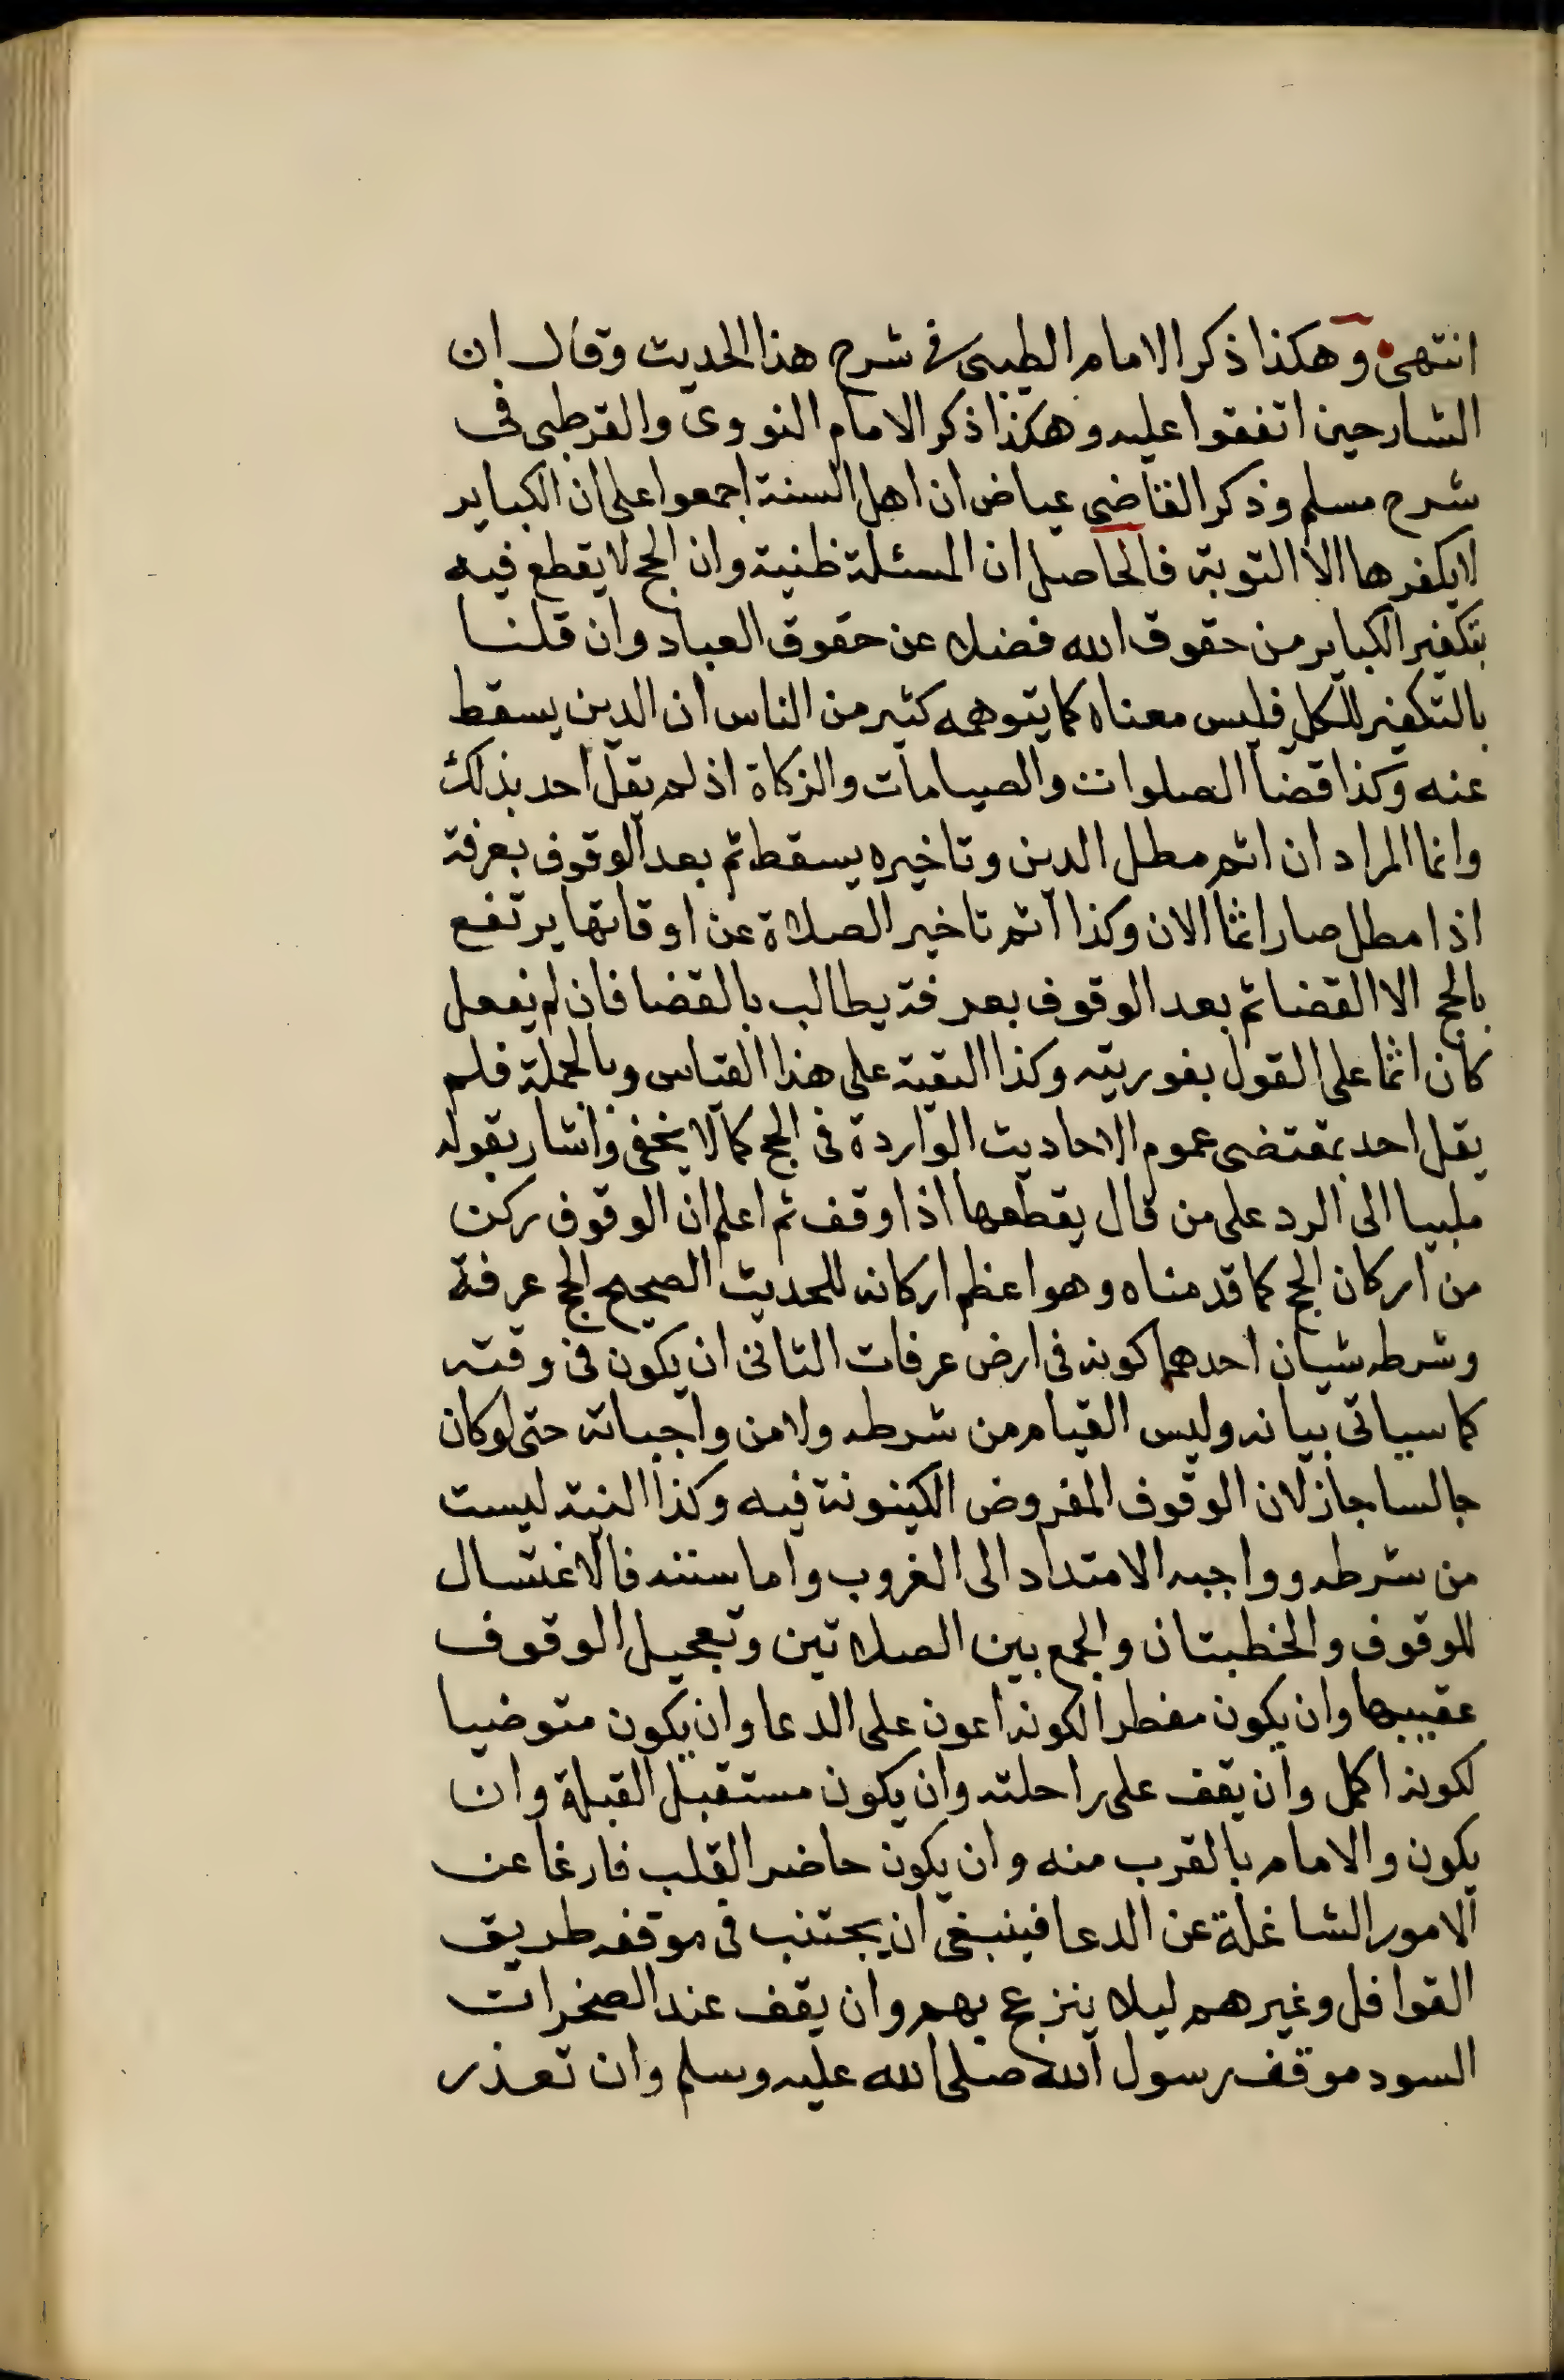 انتهى وهكذا ذكر الامام الطيبى فى شرح هذا الحديث وقال ان
الشارحين اتفقوا عليه وهكذا ذكر الامام النووى والقرطبى فى
شرح مسلم وذكر القاضى عياض ان اهل السنة اجمعوا على ان الكباير
لا يكفرها الا التوبة فالحاصل ان المسئلة ظنية وان الحج لا يقطع فيه
بتكفير الكباير من حقوق الله فضلا عن حقوق العباد وان قلنا
بالتكفير للكل فليس معناه كما يتوهمه كثير من الناس ان الدين يسقط
عنه وكذا قضا الصلوات والصيامات والزكاة اذ لم يقل احد بذلك
وانما المراد ان اثم مطل الدين وتاخيره يسقط ثم بعد الوقوف بعرفة
اذا مطل صار اثما الان وكذا اثم تاخير الصلاة عن اوقاتها يرتفع
بالحج الا القضا ثم بعد الوقوف بعرفة يطالب بالقضا فان لم يفعل
كان اثما على القول بفوريته وكذا البقية على هذا القياس وبالجملة فلم
يقل احد بمقتضى عموم الاحاديث الواردة فى الحج كما لا يخفى واشار بقوله
ملبيا الى الرد على من قال يقطعها اذا وقف ثم اعلم ان الوقوف ركن
من اركان الحج كما قدمناه وهو اعظم اركانه للحديث الصحيح الحج عرفة
وشرطه شيان احدهما كونه فى ارض عرفات الثانى ان يكون فى وقته
كما سياتى بيانه وليس القيام من شرطه ولا من واجباته حتى لو كان
جالسا جاز لان الوقوف المفروض الكينونة فيه وكذا النية ليست
من شرطه وواجبه الامتداد الى الغروب واما سننه فالاغتسال
للوقوف والخطبتان والجمع بين الصلاتين وتعجيل الوقوف
عقيبهما وان يكون مفطرا لكونه اعون على الدعا وان يكون متوضيا
لكونه اكمل وان يقف على راحلته وان يكون مستقبل القبلة وان
يكون والامام بالقرب منه وان يكون حاضر القلب فارغا عن
الامور الشاغلة عن الدعا فينبغى ان يجتنب فى موقفه طريق
القوافل وغيرهم ليلا ينزعج بهم وان يقف عند الصخرات
السود موقف رسول الله صلى الله عليه وسلم وان تعذر